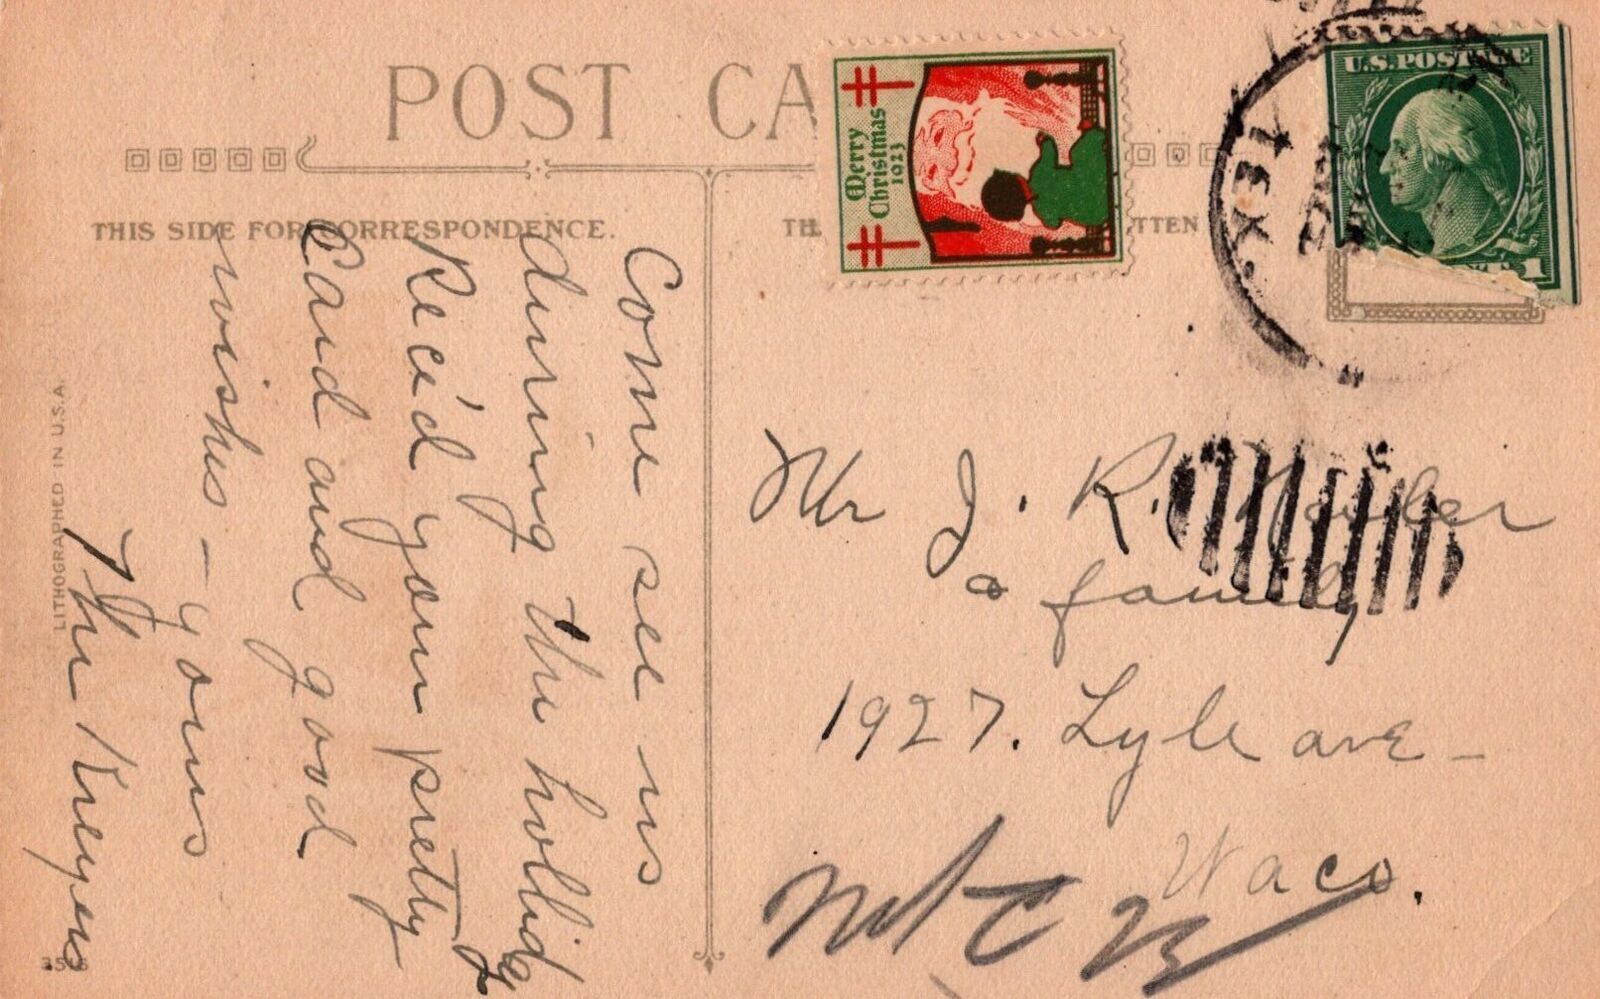 POST CA
THIS SIDE FOR CORRESPONDENCE.
TH
TTEN
Merry
Christmas
1923
U.S. POSTAGE
CENTS 1
TEX.
Come see us
during the hollidays
Rec'd your pretty
Card and good
wishes – yours
The Kreyers
Mr J. R.
& family
1927. Lyle ave –
Waco.
LITHOGRAPHED IN U.S.A.